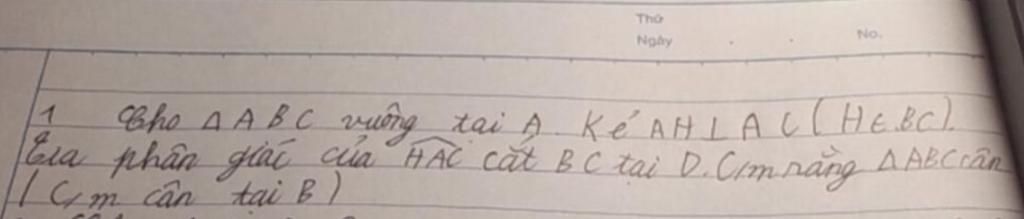 Thứ
Ngày
No.
1 Cho ΔABC vuông tại A. Kẻ AH⊥AC (H∈BC).
Tia phân giác của HAC cắt BC tại D. C/m rằng ΔABC cân
(C/m cân tại B)